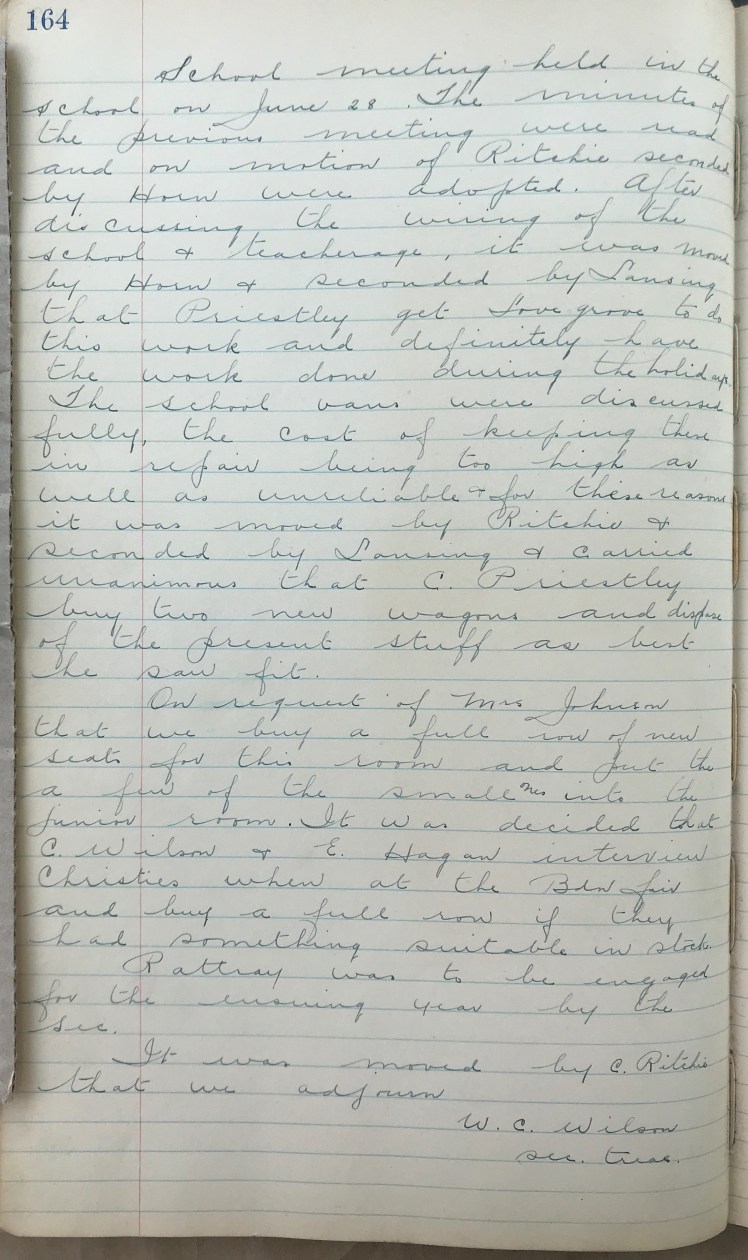 164
School meeting held in the
school on June 28. The minutes of
the previous meeting were read
and on motion of Ritchie seconded
by Horn were adopted. After
discussing the wiring of the
school & teacherage, it was moved
by Horn & seconded by Lansing
that Priestley get Lovegrove to do
this work and definitely have
the work done during the holidays.
The school vans were discussed
fully, the cost of keeping these
in repair being too high as
well as unreliable & for these reasons
it was moved by Ritchie &
seconded by Lansing & carried
unanimous that C. Priestley
buy two new wagons and dispose
of the present stuff as best
he saw fit.
On request of Mrs Johnson
that we buy a full row of new
seats for this room and put the
a few of the small nes into the
junior room. It was decided that
C. Wilson & E. Hagan interview
Christies when at the Bdn fair
and buy a full row if they
had something suitable in stock.
Rattray was to be engaged
for the ensuing year by the
sec.
It was moved by C. Ritchie
that we adjourn
W. C. Wilson
sec. treas.